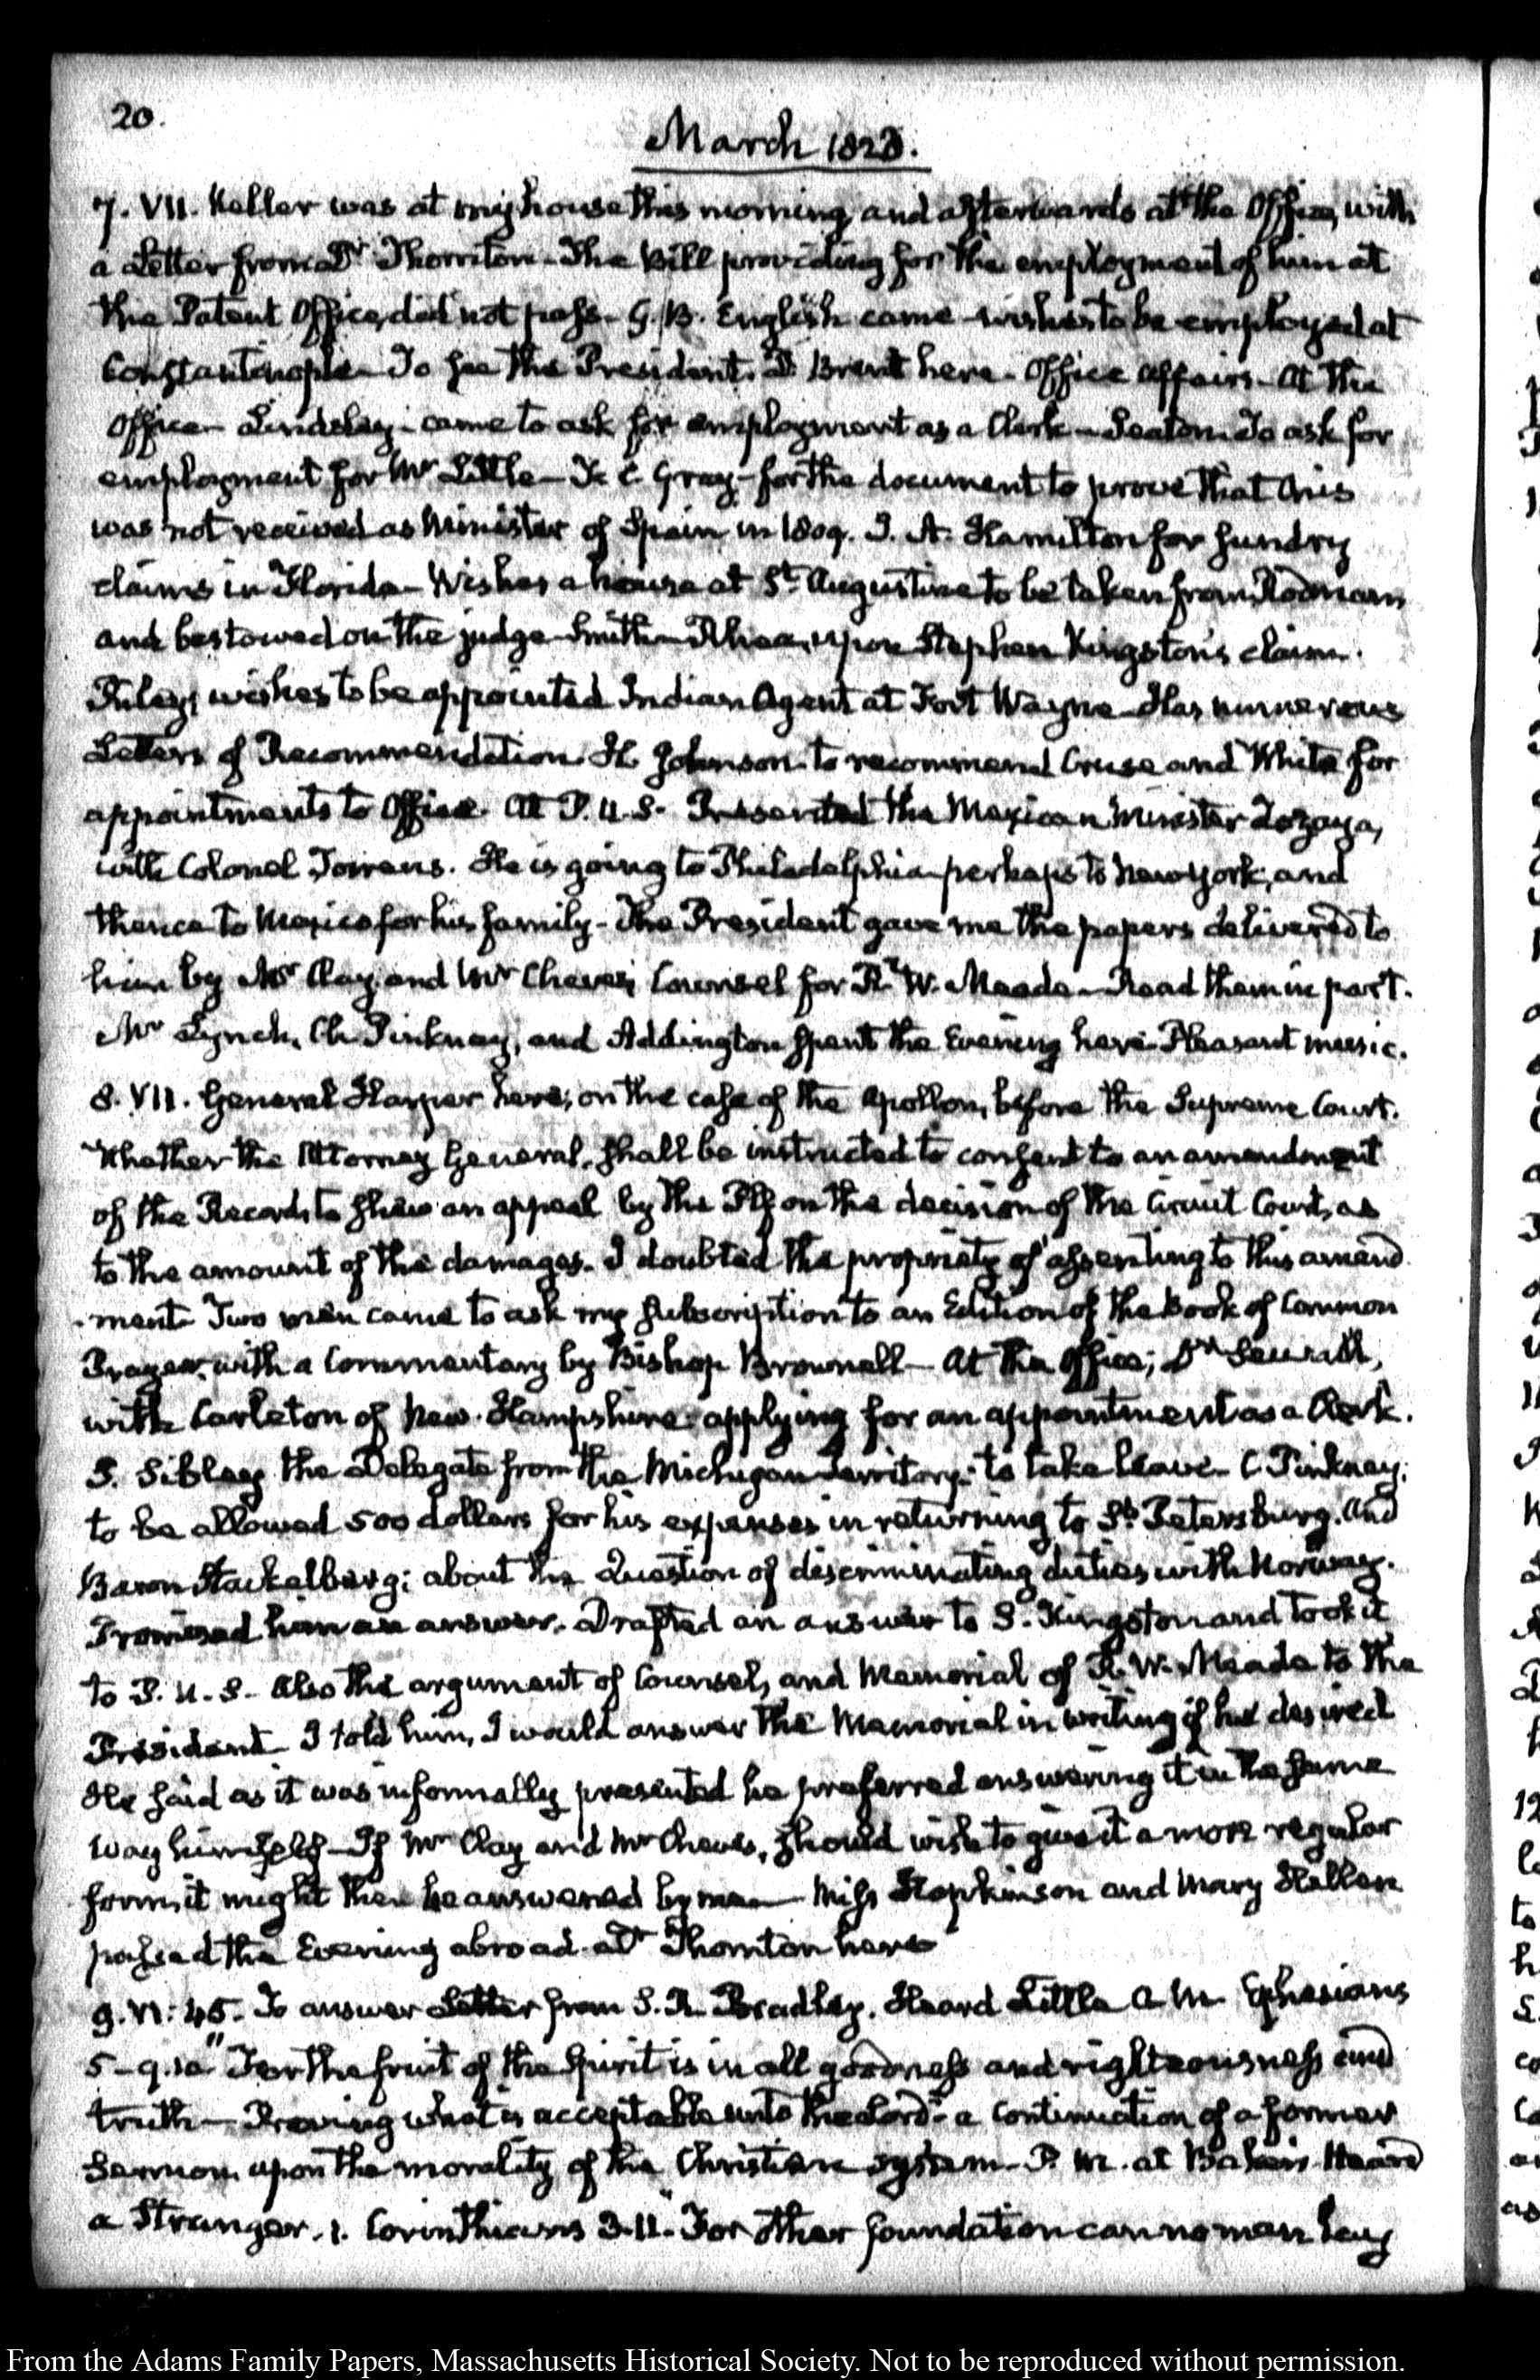 20.
March 1823.
7. VII. Keller was at my house this morning and afterwards at the Office, with
a Letter from Dr. Thornton. The Bill providing for the employment of him at
the Patent Office, did not pass. G. B. English came wishes to be employed at
Constantinople. To see the President. D Brent here. Office affairs. At the
Office. Lindsley came to ask for employment as a Clerk. Seaton. To ask for
employment for Mr Little. F. C. Gray for the document to prove that Onis
was not received as Minister of Spain in 1809. J. A. Hamilton for sundry
claims in Florida. Wishes a house at St. Augustine to be taken from Rodman
and bestowed on the judge Smith. Rhea, upon Stephen Kingston's claim.
wishes to be appointed Indian Agent at Fort Wayne. Has numerous
Letters of Recommendation. H. Johnson to recommend Cruse and White for
appointments to Office. At P. U. S. Presented the Mexican Minister Zozaya,
with Colonel Torrens. He is going to Philadelphia perhaps to New York, and
thence to Mexico for his family. The President gave me the papers delivered to
him by Mr Clay and Mr Cheves, Counsel for R. W. Meade. Read them in part.
Mr Lynch, Ch. Pinkney, and Addington spent the Evening here. Pleasant music.
8. VII. General Harper here, on the case of the Apollon, before the Supreme Court.
Whether the Attorney General, shall be instructed to consent to an amendment
of the Record, to shew an appeal by the Plf on the decision of the Circuit Court, as
to the amount of the damages. I doubted the propriety of assenting to this amend
ment. Two men came to ask my subscription to an Edition of the Book of Common
Prayer, with a Commentary by Bishop Brownell. At the Office; Dr. Sewall,
with Carleton of New Hampshire applying for an appointment as a Clerk.
S. Sibley the Delegate from the Michigan Territory: to take leave. C. Pinkney;
to be allowed 500 dollars for his expenses in returning to St. Petersburg. And
Baron Stackelberg; about the Question of discriminating duties with Norway.
Promised him an answer. Drafted an answer to S. Kingston and took it
to P. U. S. Also the argument of Counsel, and Memorial of R. W. Meade to the
President. I told him, I would answer the Memorial in writing if he desired
He said as it was informally presented he preferred answering it in the same
way himself. If Mr Clay and Mr Cheves, should wish to give it a more regular
form, it might then be answered by me. Miss Hopkinson and Mary Hellen
passed the Evening abroad. Dr Thornton here
9. VI: 45. To answer Letter from S. R. Bradley. Heard Little A. M. Ephesians
5-9.10 "For the fruit of the Spirit is in all goodness and righteousness and
truth — Proving what is acceptable unto the Lord" a continuation of a former
Sermon upon the morality of the Christian system. P. M. at Baker's. Heard
a Stranger. 1. Corinthians 3.11. "For other foundation can no man lay
From the Adams Family Papers, Massachusetts Historical Society. Not to be reproduced without permission.